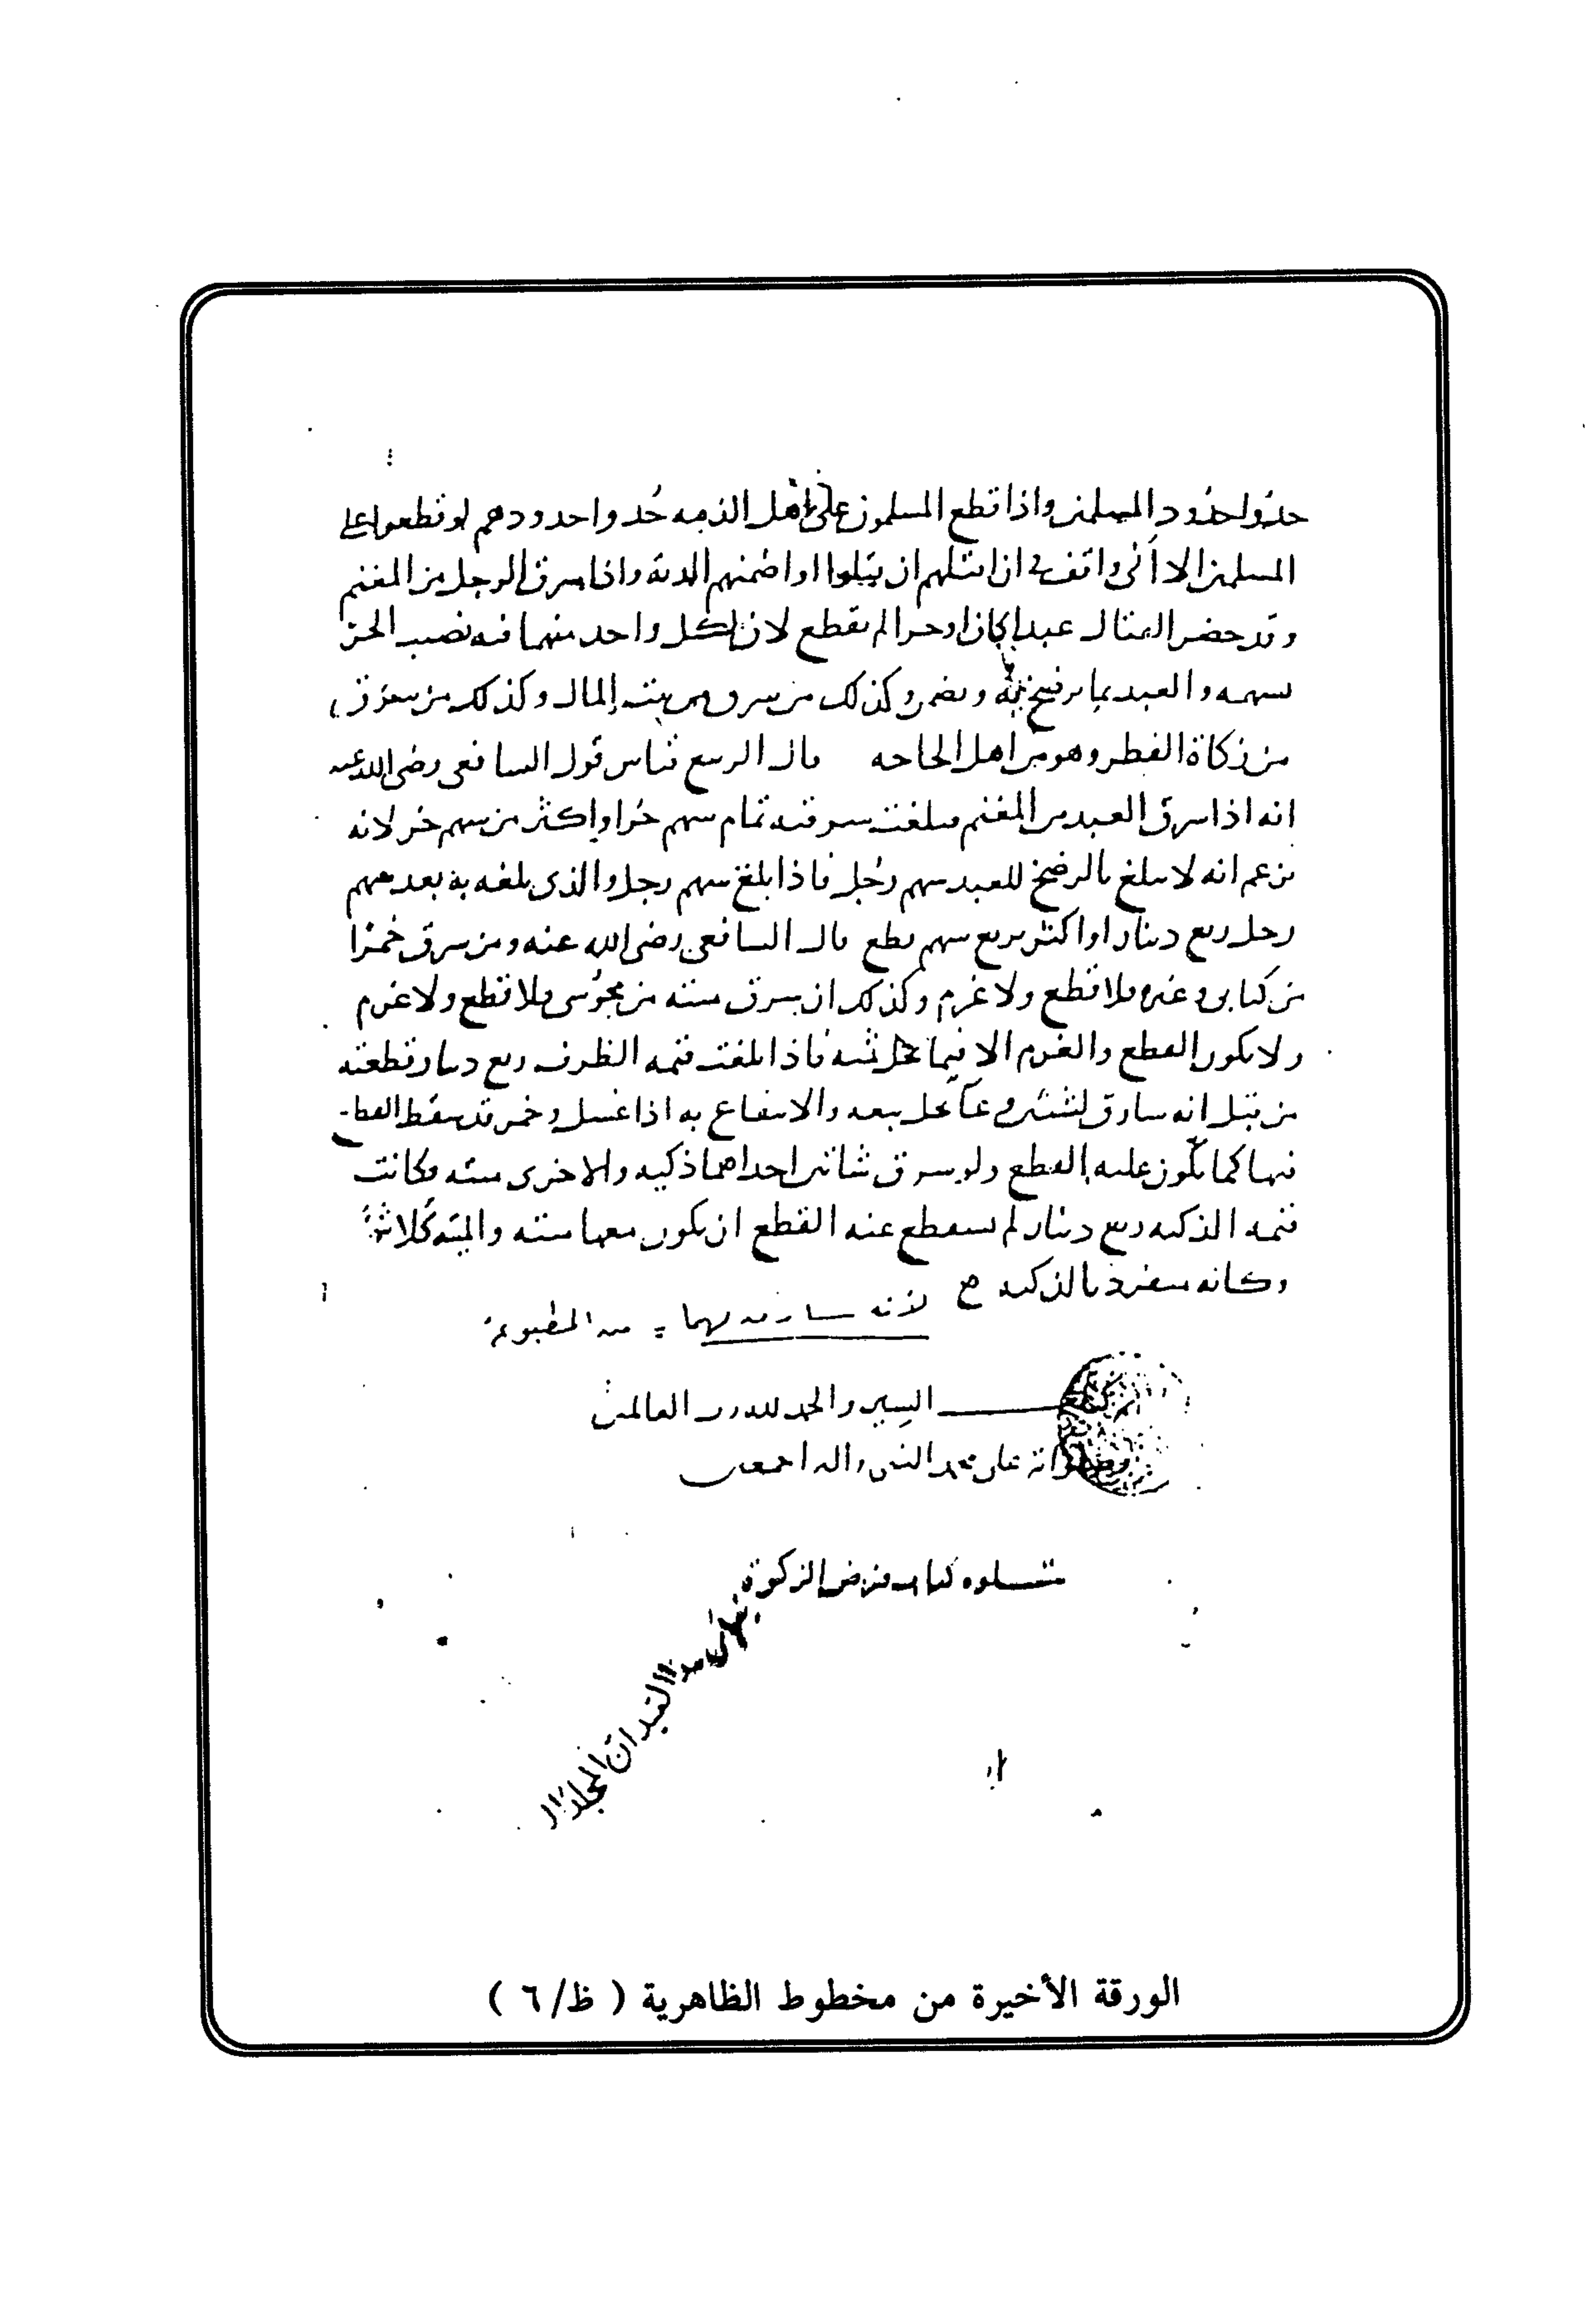 حدوا حدود المسلمين واذا قطع المسلمون على اهل الذمه حدوا حدودهم لو قطعوا على
المسلمين الا انى واقف فى ان اقتلهم ان قتلوا او اضمنهم الدية واذا سرق الرجل من المغنم
وقد حضر القتال عبدا كان او حرا لم يقطع لان لكل واحد منهما فيه نصيب الحر
بسهمه والعبد بما يرضخ له ويضمن وكذلك من سرق من بيت المال وكذلك من سرق
من زكاة الفطر وهو من اهل الحاجه قال الربيع قياس قول الشافعى رضى الله عنه
انه اذا سرق العبد من المغنم فبلغت سرقته تمام سهم حر او اكثر من سهم حر لانه
يزعم انه لا يبلغ بالرضخ للعبد سهم رجل فاذا بلغ سهم رجل والذى بلغه به بعد سهم
رجل ربع دينار او اكثر بربع سهم قطع قال الشافعى رضى الله عنه ومن سرق خمرا
من كتابى وغيره فلا قطع ولا غرم وكذلك ان سرق ميته من مجوسى فلا قطع ولا غرم
ولا يكون القطع والغرم الا فيما يحل ثمنه فاذا بلغت قيمه الظرف ربع دينار قطعته
من قبل انه سارق لشيئين مما يحل بيعه والانتفاع به اذا غسل وخمر قد سقط القطع
فيها كما يكون عليه القطع ولو سرق شاتين احداهما ذكيه والاخرى ميته فكانت
قيمه الذكيه ربع دينار لم يسقط عنه القطع ان يكون معها ميته والميته كلا شئ
وكانه منفرد بالذكيه لانه سارق لهما = من المطبوعة
السير والحمد لله رب العالمين
وصلواته على محمد النبى واله اجمعين
يتلوه كتاب فرض الزكوة
المجلد
الورقة الأخيرة من مخطوط الظاهرية ( ظ/٦ )